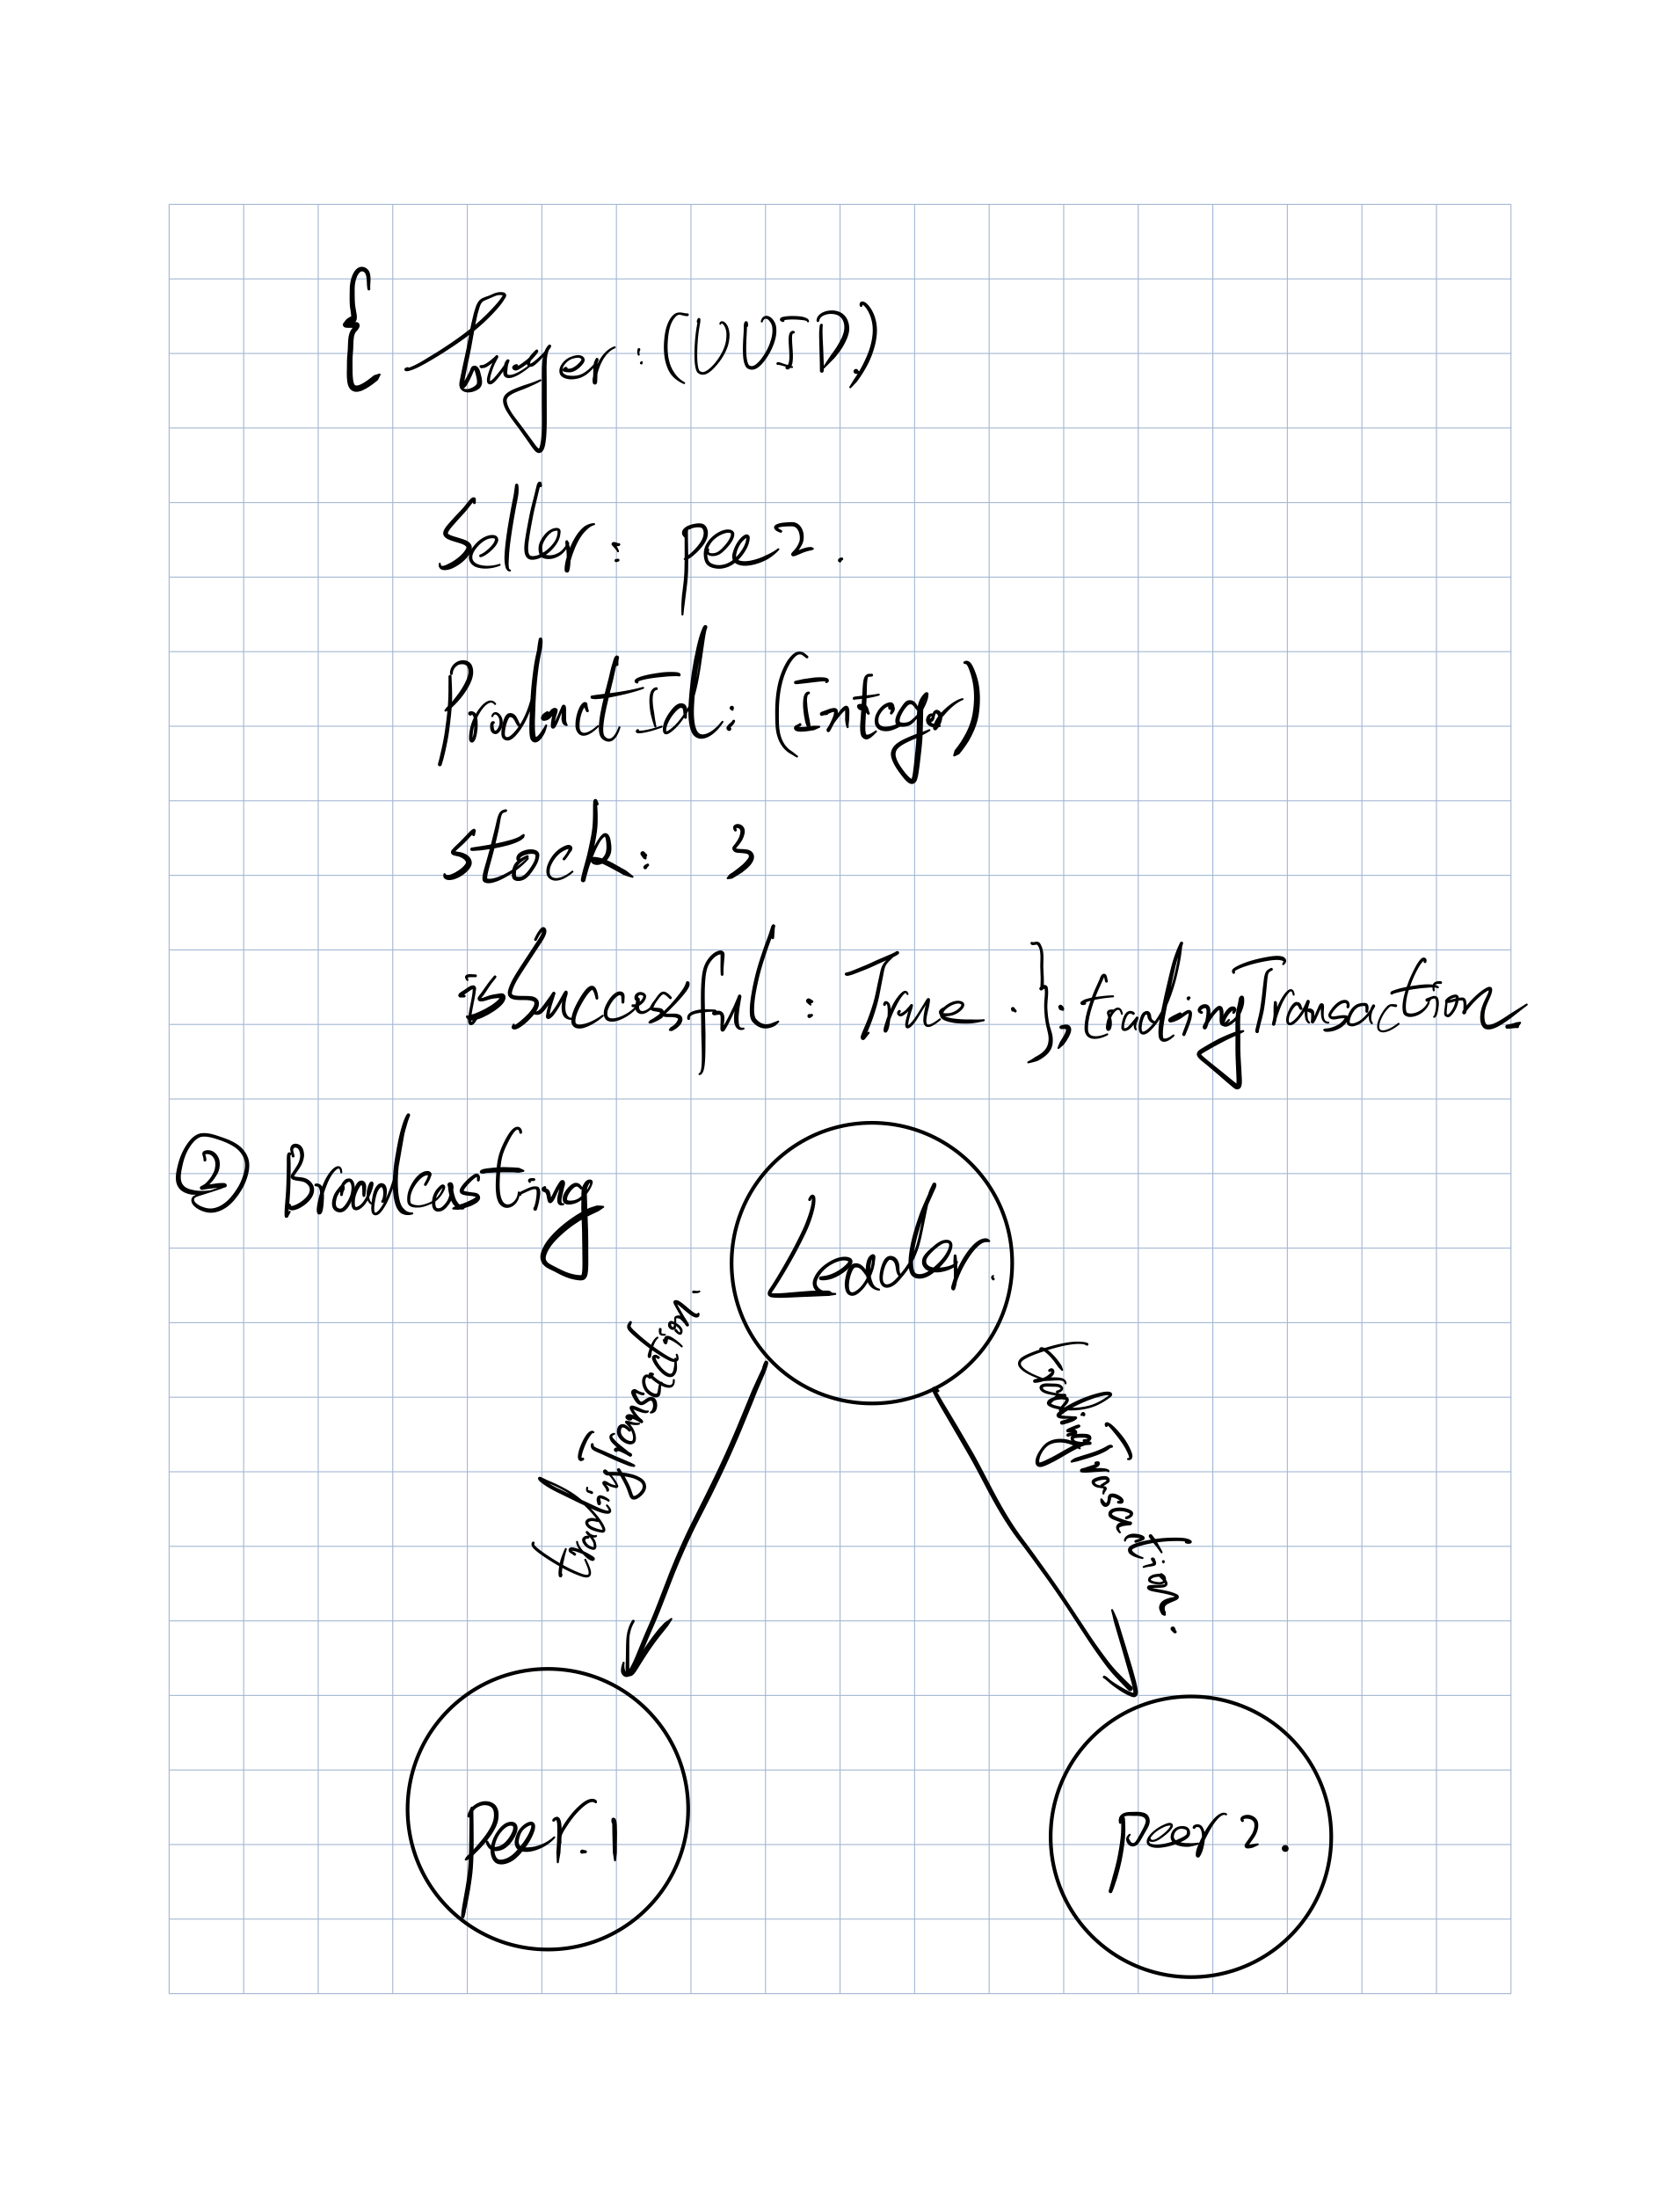 { buyer: (UUID)
seller: pee2.
productId: (Integer)
stock: 3
isSuccessful: True. }; tradingTransaction.
② Broadcasting
Leader.
tradingTransaction.
tradingTransaction.
peer.1
peer2.